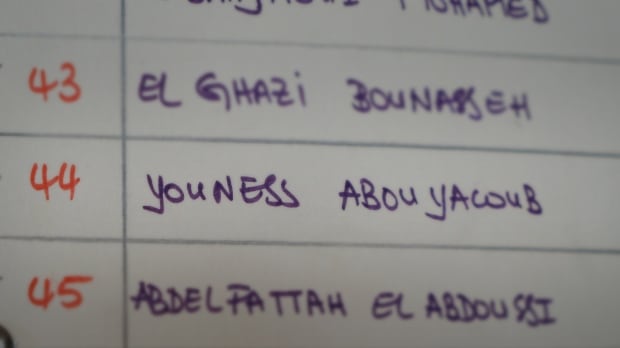 MOHAMED
43 EL GHAZi BOUNASSEH
44 YOUNESS ABOUYACOUB
45 ABDELFATTAH EL ABDOUSSI